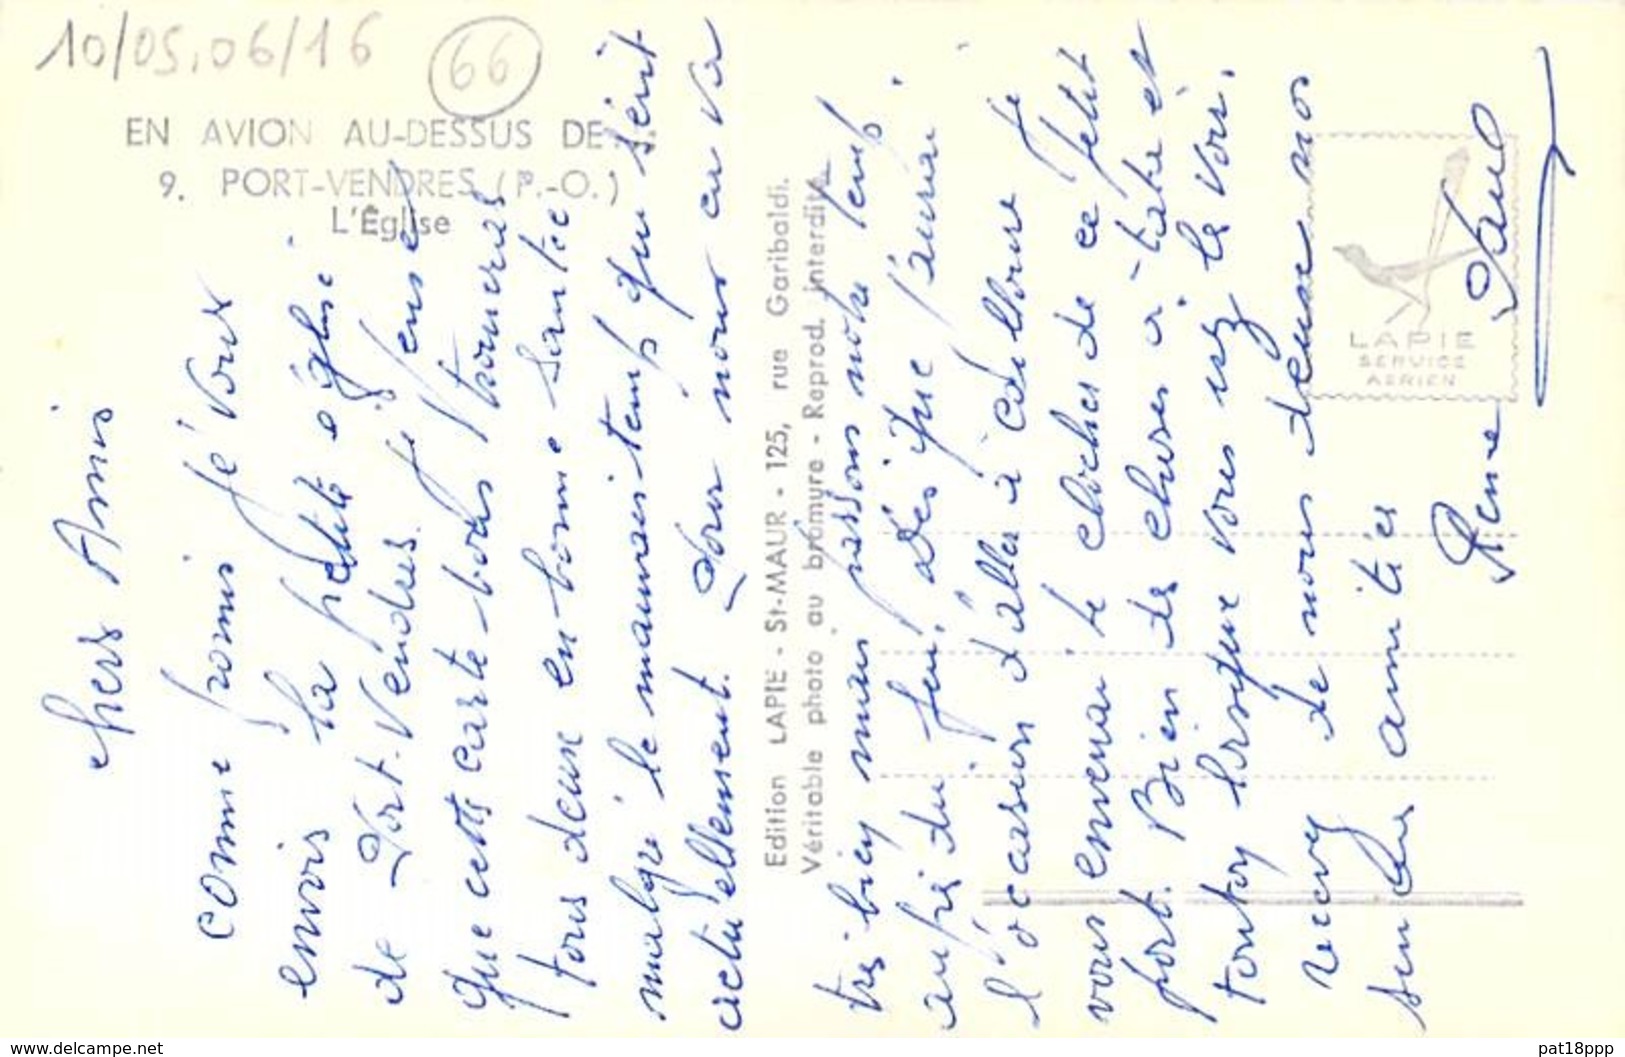 10/05.06/16
66
EN AVION AU-DESSUS DE...
9. PORT-VENDRES (P.-O.)
L'Église
Chers Amis
comme promis je vous
envois la petite église
de Port-Vendres. Je pense
que cette carte vous trouveras
tous deux en bonne santée
malgré le mauvais temps qui sévit
actuellement. Pour nous ça va
Edition LAPIE - St-MAUR - 125, rue Garibaldi.
Véritable photo au bromure - Reprod. interdite
très bien mais passons notre temps
auprès du feu. Dès que j'aurai
l'ocasion d'aller à Collioure je
vous enverrai le clocher de ce petit
port. Bien des choses à take et
tonton lorsque vous irez les voir.
Recevez de nous deux nos
sincères amitiés
René Paul
LAPIE
SERVICE
AERIEN
www.delcampe.net
pat18ppp